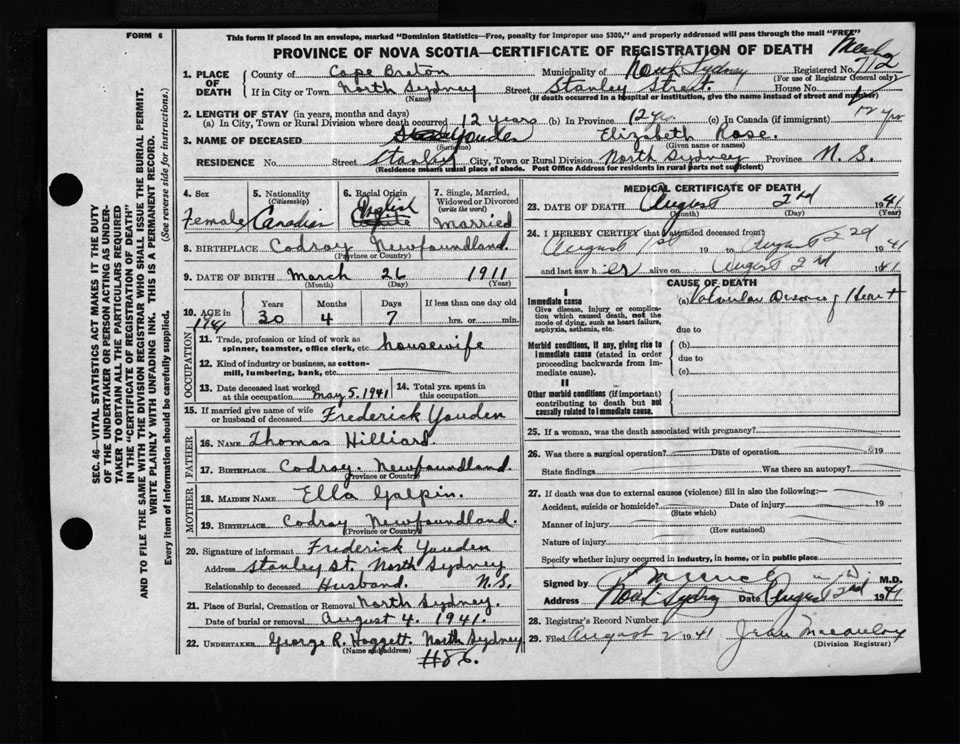 FORM 6
This form if placed in an envelope, marked "Dominion Statistics—Free, penalty for improper use $300," and properly addressed will pass through the mail "FREE"
PROVINCE OF NOVA SCOTIA—CERTIFICATE OF REGISTRATION OF DEATH
SEC. 46—VITAL STATISTICS ACT MAKES IT THE DUTY
OF THE UNDERTAKER OR PERSON ACTING AS UNDER-
TAKER TO OBTAIN ALL THE PARTICULARS REQUIRED
IN THE "CERTIFICATE OF REGISTRATION OF DEATH"
AND TO FILE THE SAME WITH THE DIVISION REGISTRAR WHO SHALL ISSUE THE BURIAL PERMIT.
WRITE PLAINLY WITH UNFADING INK. THIS IS A PERMANENT RECORD.
Every item of information should be carefully supplied. (See reverse side for instructions.)
1. PLACE OF DEATH
County of Cape Breton Municipality of North Sydney Registered No. 712
(For use of Registrar General only)
If in City or Town North Sydney Street Stanley Street. House No.
(Name) (If death occurred in a hospital or institution, give the name instead of street and number)
2. LENGTH OF STAY (in years, months and days)
(a) In City, Town or Rural Division where death occurred 12 years (b) In Province 12 yrs (c) In Canada (if immigrant) 12 yrs
3. NAME OF DECEASED Youden Elizabeth Rose.
(Surname) (Given name or names)
RESIDENCE No. Street Stanley City, Town or Rural Division North Sydney Province N. S.
(Residence means usual place of abode. Post Office Address for residents in rural parts not sufficient)
4. Sex
Female
5. Nationality
(Citizenship)
Canadian
6. Racial Origin
English
7. Single, Married, Widowed or Divorced
(write the word)
Married
8. BIRTHPLACE Codroy Newfoundland.
(Province or Country)
9. DATE OF BIRTH March 26 1911
(Month) (Day) (Year)
10. AGE in
1941
Years 30
Months 4
Days 7
If less than one day old
hrs. or min.
OCCUPATION
11. Trade, profession or kind of work as spinner, teamster, office clerk, etc. housewife
12. Kind of industry or business, as cotton-mill, lumbering, bank, etc.
13. Date deceased last worked at this occupation May 5. 1941
14. Total yrs. spent in this occupation
15. If married give name of wife or husband of deceased Frederick Youden
FATHER
16. NAME Thomas Hilliard.
17. BIRTHPLACE Codroy. Newfoundland.
(Province or Country)
MOTHER
18. MAIDEN NAME Ella Galpin.
19. BIRTHPLACE Codroy Newfoundland.
(Province or Country)
20. Signature of informant Frederick Youden
Address Stanley St. North Sydney
Relationship to deceased Husband. N.S.
21. Place of Burial, Cremation or Removal North Sydney.
Date of burial or removal August 4. 1941.
22. UNDERTAKER George R. Hoggett. North Sydney
(Name and address)
MEDICAL CERTIFICATE OF DEATH
23. DATE OF DEATH August 2nd 1941
(Month) (Day) (Year)
24. I HEREBY CERTIFY that I attended deceased from?
August 1st 19 to August 2nd 1941
and last saw her alive on August 2nd 1941
CAUSE OF DEATH
I
Immediate cause
Give disease, injury or complication which caused death, not the mode of dying, such as heart failure, asphyxia, asthenia, etc.
(a) Valvular Disease of Heart
due to
Morbid conditions, if any, giving rise to immediate cause (stated in order proceeding backwards from immediate cause).
(b)
due to
(c)
II
Other morbid conditions (if important) contributing to death but not causally related to immediate cause.
25. If a woman, was the death associated with pregnancy?
26. Was there a surgical operation? Date of operation 19
State findings Was there an autopsy?
27. If death was due to external causes (violence) fill in also the following:—
Accident, suicide or homicide? Date of injury 19
(State which)
Manner of injury
(How sustained)
Nature of injury
Specify whether injury occurred in industry, in home, or in public place
Signed by M.D.
Address North Sydney Date August 2nd 1941
28. Registrar's Record Number
29. Filed August 2 1941 Jean Macaulay
(Division Registrar)